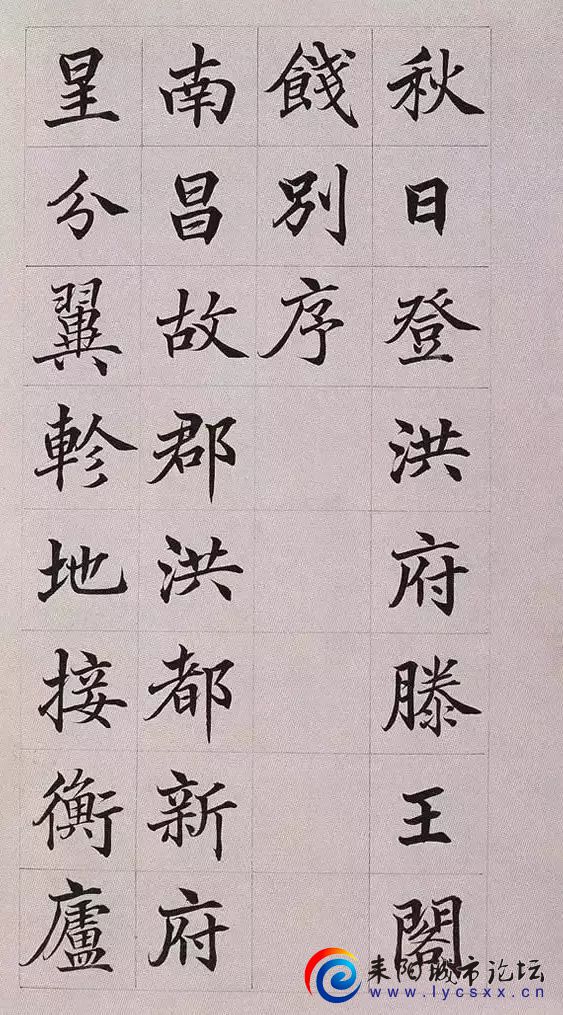 秋日登洪府滕王閣
餞別序
南昌故郡洪都新府
星分翼軫地接衡廬
耒阳城市论坛
www.lycsxx.cn